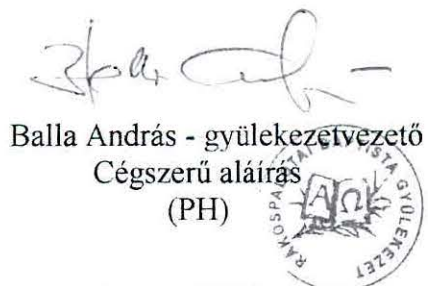 Balla András - gyülekezetvezető
Cégszerű aláírás
(PH)
RÁKOSPALOTAI BAPTISTA GYÜLEKEZET
Α Ω